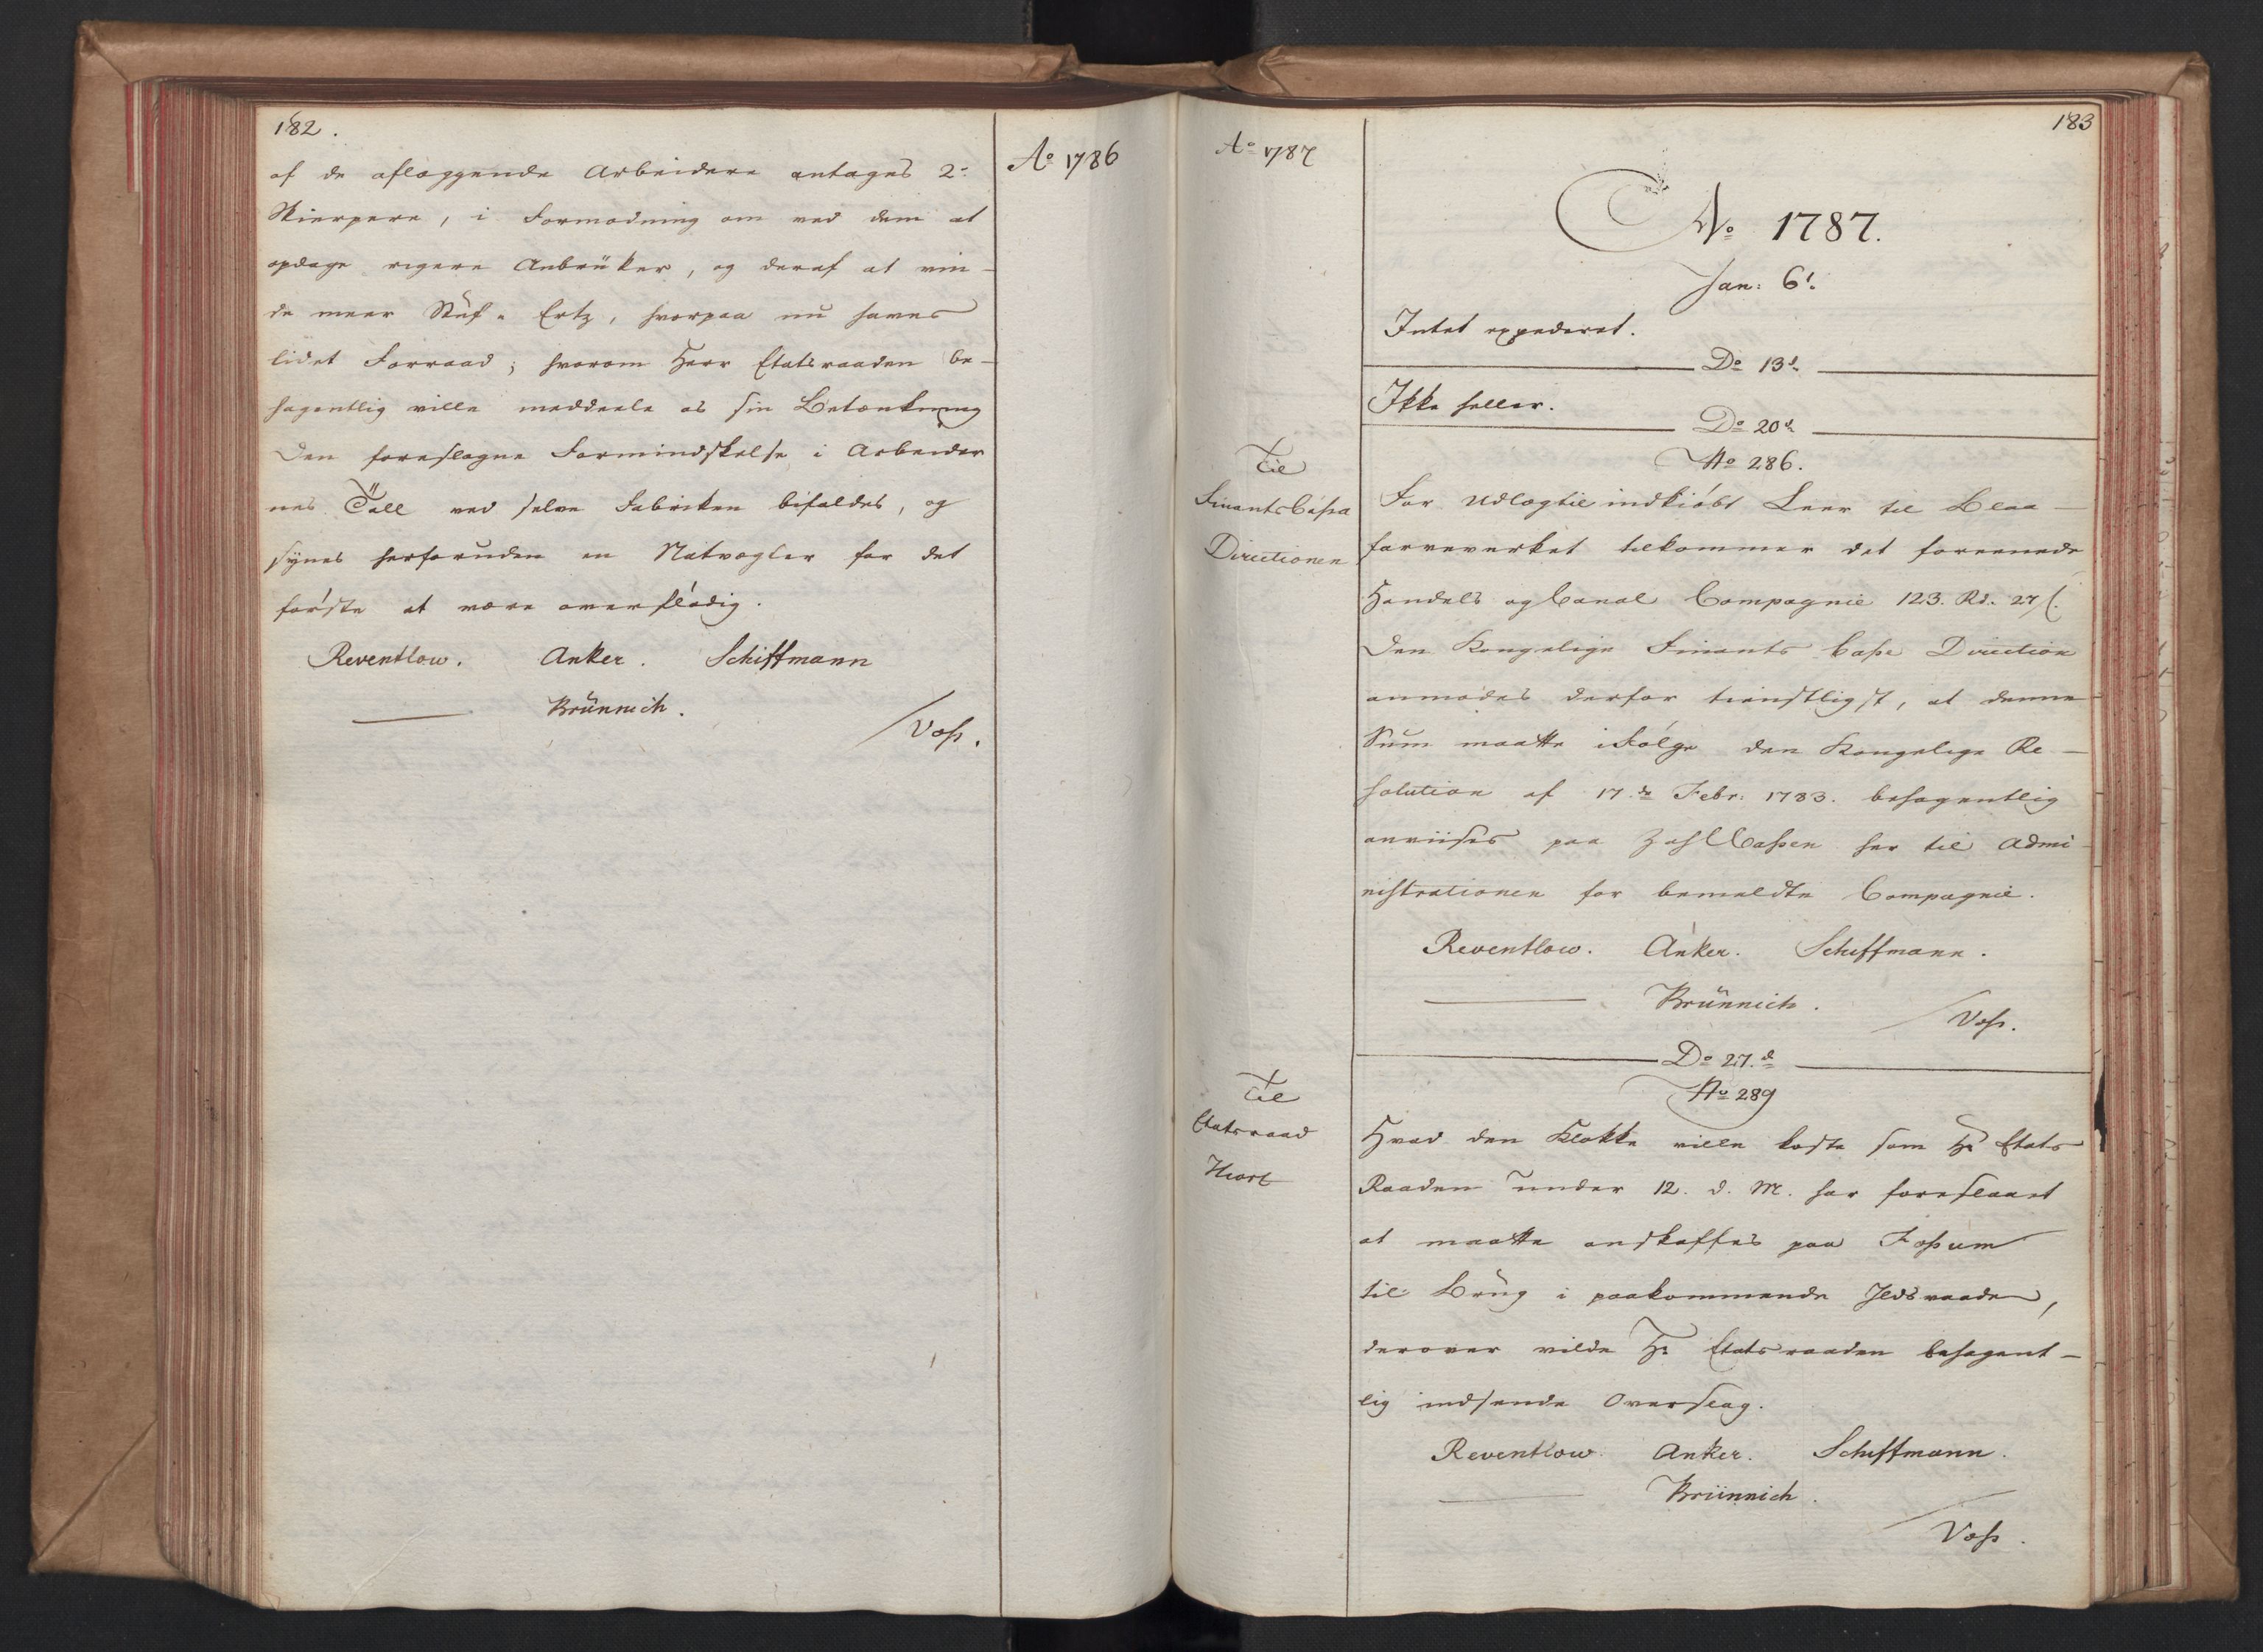 182.
Ao 1786
af de aflæggende Arbeidere antages 2de
Skierpere, i Formodning om ved dem at
opdage rigere Anbrüker, og deraf at vin-
de meer Stúf-Ertz, hvorpaa nu haves
lidet Forraad; hvorom Herr Etatsraaden be-
hagentlig ville meddeele os sin Betænkning
Den foreslagne Formindskelse i Arbeider
nes Tall ved selve Fabriken bifaldes, og
synes herforuden en Natvægter for det
förste at være overflödig.
Reventlow. Anker. Schiffmann
Brünnich.
Voss.
183
Ao 1787
Ao 1787.
Jan: 6t.
Intet expederet.
Do 13d.
Ikke heller.
Do 20d.
No 286.
Til
FinantsCassa
Directionen
For Udlæg til indkiöbt Leer til Blaa-
farveverket tilkommer det foreenede
Handels og Canal Compagnie 123. Rd. 27 ſ.
Den Kongelige Finants Casse Direction
anmodes derfor tienstligst, at denne
Sum maatte ifölge den Kongelige Re-
solution af 17.de Febr: 1783. behagentlig
anviises paa ZahlCassen her til Admi-
nistrationen for bemeldte Compagnie.
Reventlow. Anker. Schiffmann.
Brünnich.
Voss.
Do 27.d
No 289
Til
Etatsraad
Hiort
Hvad den Klokke ville koste som Hr Etats
Raaden under 12. d. M. har foreslaaet
at maatte anskaffes paa Fossum
til Brug i paakommende Ildsvaade,
derover vilde Hr Etatsraaden behagent-
lig indsende Overslag.
Reventlow. Anker. Schiffmann.
Brünnich.
Voss.